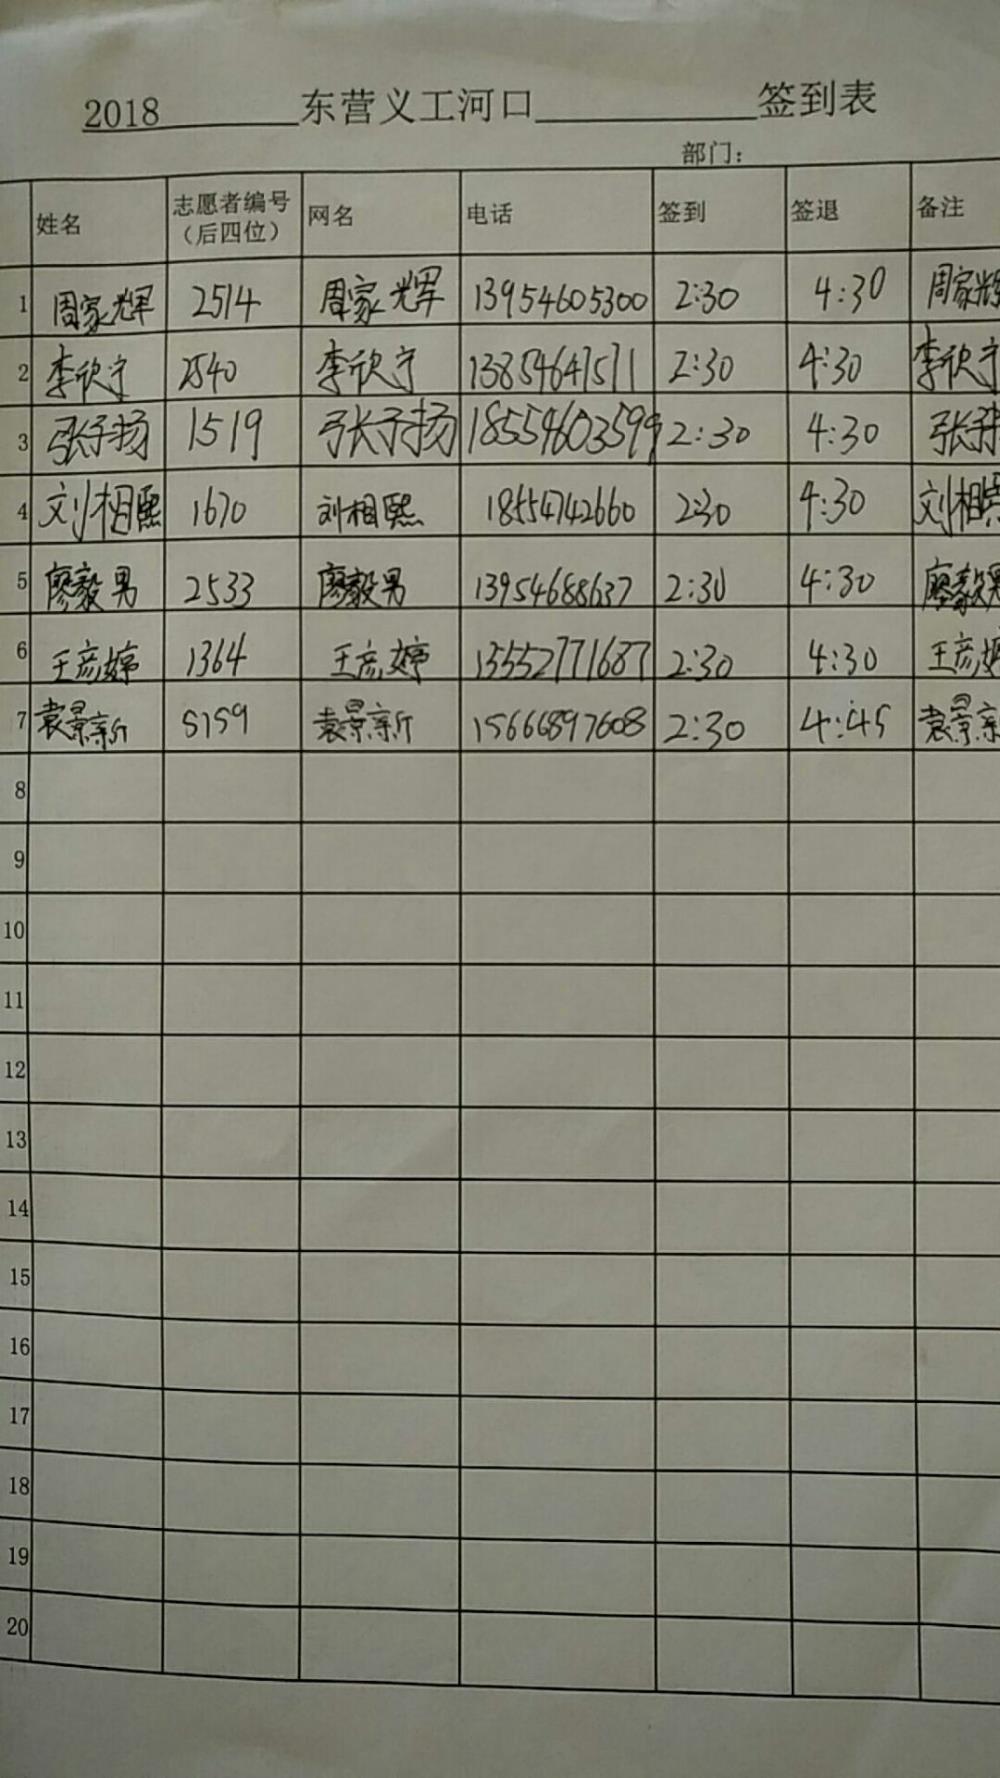 2018________东营义工河口____________签到表
部门：
姓名 志愿者编号（后四位） 网名 电话 签到 签退 备注
1 周家辉 2514 周家辉 13954605300 2:30 4:30 周家辉
2 李欣宁 2540 李欣宁 13854641511 2:30 4:30 李欣宁
3 张子扬 1519 张子扬 18554603599 2:30 4:30 张子扬
4 刘相熙 1670 刘相熙 18554742660 2:30 4:30 刘相熙
5 廖毅男 2533 廖毅男 13954688637 2:30 4:30 廖毅男
6 王彦婷 1364 王彦婷 13552771687 2:30 4:30 王彦婷
7 袁景新 5159 袁景新 15666897608 2:30 4:45 袁景新
8
9
10
11
12
13
14
15
16
17
18
19
20